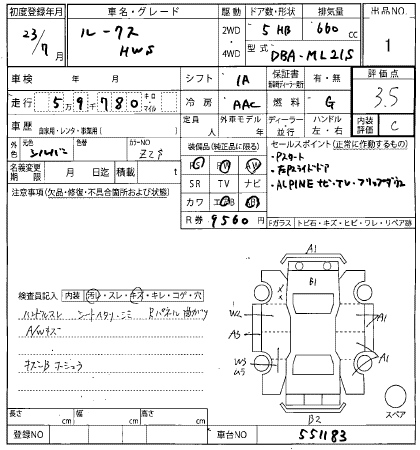 初度登録年月 車名・グレード 駆動 ドア数・形状 排気量 出品NO.
23/7月 ルークス HWS 2WD 4WD 5 HB 660 cc 1
型式 DBA-ML21S
車検 年 月 シフト IA 保証書 有・無 評価点
走行 5 9 7 8 0 キロ・マイル 冷房 AAC 燃料 G 3.5
車歴 自家用・レンタ・事業用( ) 定員 人 外車モデル 年 ディーラー 並行 ハンドル 左・右 内装評価 C
外色 元色 シルバー 色替 カラーNO Z2S 装備品(純正品に限る) セールスポイント(正常に作動するもの)
・Pスタート
名義変更期限 月 日 積載 t SR TV ナビ ・左Pスライドドア
注意事項(欠品・修復・不具合箇所および状態) カワ エアB ・ALPINE ナビ・TV・フリップダウン
R券 9560 円 Fガラス トビ石・キズ・ヒビ・ワレ・リペア跡
検査員記入 内装 汚レ・スレ・キズ・キレ・コゲ・穴
ハンドルスレ シートスタリ・シミ
A/Wキズ
A1
B1
W2
A3
W3
U3
A1
A1
B2
スペア
長さ cm 幅 cm 高さ cm
登録NO 車台NO 551183